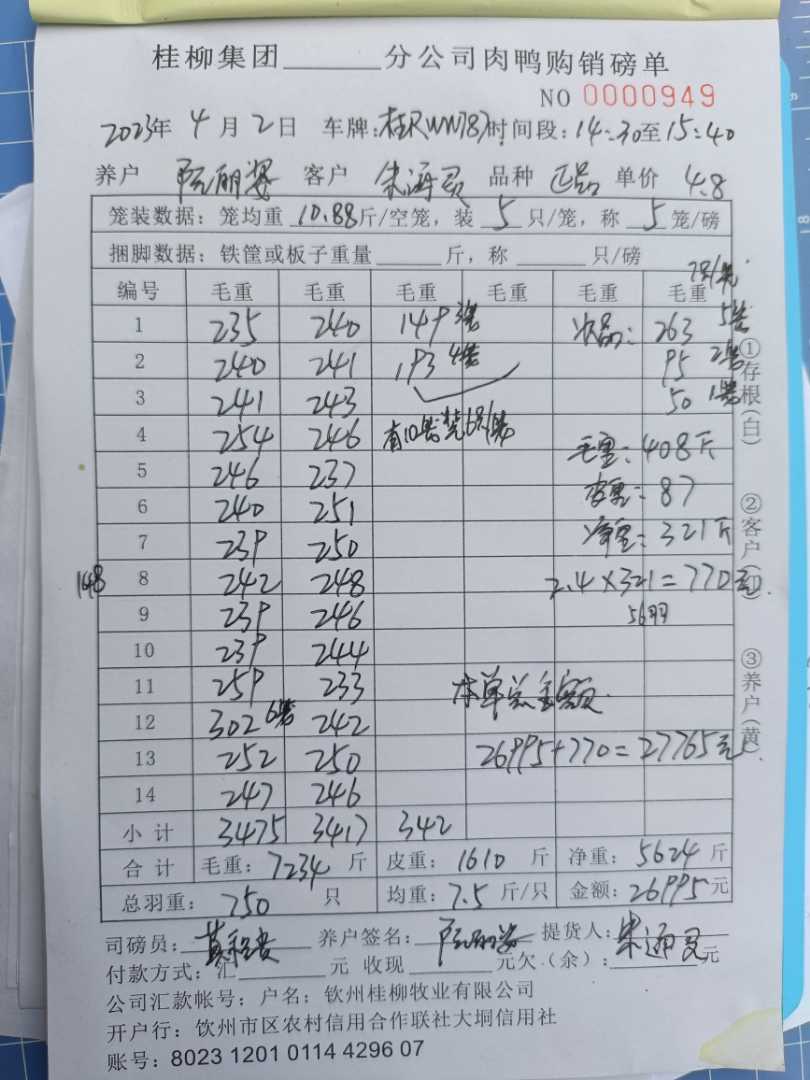 桂柳集团______分公司肉鸭购销磅单
NO 0000949
2023年 4 月 2 日 车牌:桂RWW787 时间段:14:30至15:40
养户 客户 朱海灵 品种 正品 单价 4.8
笼装数据:笼均重 10.88 斤/空笼,装 5 只/笼,称 5 笼/磅
捆脚数据:铁筐或板子重量______斤,称______只/磅
7只/笼
编号 毛重 毛重 毛重 毛重 毛重 毛重
1 235 240 149 3笼 次品: 263 5笼
2 240 241 193 4笼 95 2笼
3 241 243 50 1笼
4 254 246 有10笼装6只/笼 毛重:408斤
5 246 237 皮重:87
6 240 251 净重:321斤
7 239 250
148 8 242 248 2.4×321=770元.
9 239 246 56羽
10 239 244
11 259 233 本单总金额
12 302 6笼 242
13 252 250 26995+770=27765元
14 247 246
小计 3475 3417 342
合计 毛重:7234 斤 皮重:1610 斤 净重:5624 斤
总羽重: 750 只 均重:7.5 斤/只 金额:26995元
司磅员: 养户签名: 提货人:
付款方式:汇______元 收现______元欠(余):______元
公司汇款帐号:户名:钦州桂柳牧业有限公司
开户行:钦州市区农村信用合作联社大垌信用社
账号:8023 1201 0114 4296 07
①存根(白) ②客户(红) ③养户(黄)